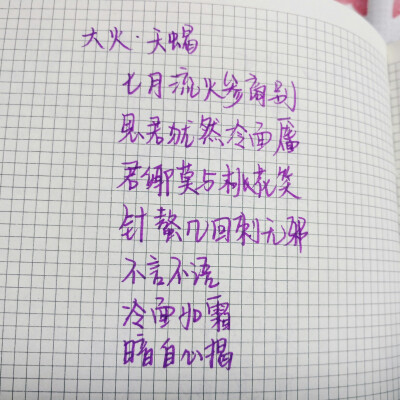 大火·天蝎
七月流火参商别
思君犹然冷面靥
君卿莫与桃花笑
针螯几回刺无邪
不言不语
冷面如霜
暗自心揭